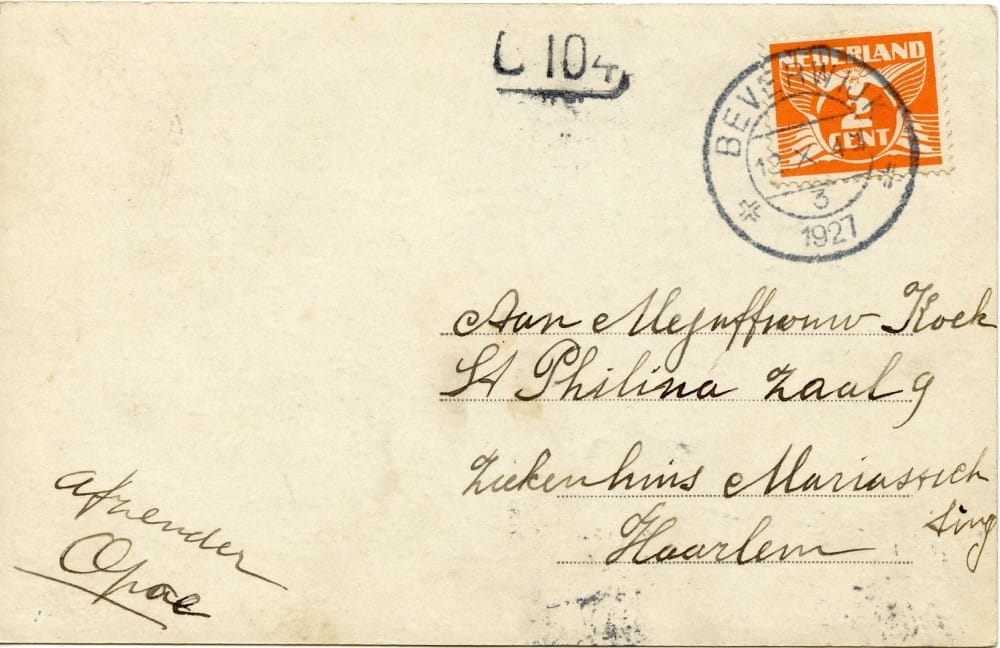 L 104
NEDERLAND
2
CENT
BEVERWIJK
12 X 4
3
1927
Aan Mejuffrouw Kock
St Philina Zaal 9
Ziekenhuis Mariastich
ting
Haarlem
afzender
Opoe